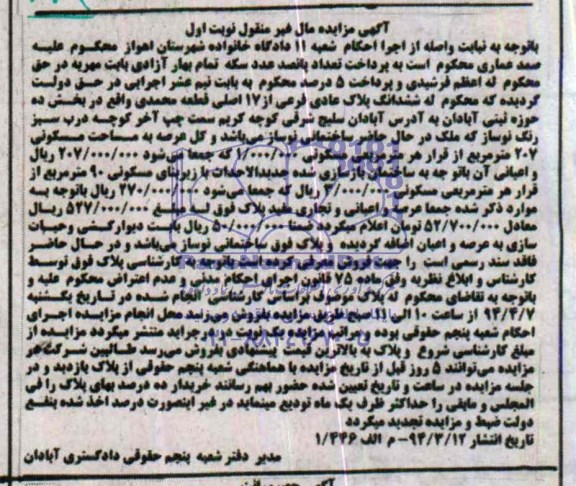 آگهی مزایده مال غیر منقول نوبت اول
باتوجه به نیابت واصله از اجرا احکام شعبه ۱۱ دادگاه خانواده شهرستان اهواز محکوم علیه
صمد عماری محکوم است به پرداخت تعداد پانصد عدد سکه تمام بهار آزادی بابت مهریه در حق
محکوم له اعظم فرشیدی و پرداخت ۵ درصد محکوم به بابت نیم عشر اجرایی در حق دولت
گردیده که محکوم له ششدانگ پلاک عادی فرعی از ۱۷ اصلی قطعه محمدی واقع در بخش ده
حوزه ثبتی آبادان به آدرس آبادان سلیچ شرقی کوچه کریم سمت چپ آخر کوچه درب سبز
رنگ نوساز که ملک در حال حاضر ساختمانی نوساز میباشد و کل عرصه به مساحت مسکونی
۲۰۷ مترمربع از قرار هر مترمربعی مسکونی ۱/۰۰۰/۰۰۰ که جمعا می شود ۲۰۷/۰۰۰/۰۰۰ ریال
و اعیانی آن باتوجه به ساختمان بازسازی شده جدیدالاحداث با زیربنای مسکونی ۹۰ مترمربع از
قرار هر مترمربعی مسکونی ۳/۰۰۰/۰۰۰ که جمعا می شود ۲۷۰/۰۰۰/۰۰۰ ریال باتوجه به
موارد ذکر شده جمعا عرصه و اعیانی و تجاری پلاک فوق مبلغ ۵۲۷/۰۰۰/۰۰۰ ریال
معادل ۵۲/۷۰۰/۰۰۰ تومان اعلام میگردد ضمنا ریال بابت دیوارکشی وحیات
سازی به عرصه و اعیان اضافه گردیده و پلاک فوق ساختمانی نوساز می باشد و در حال حاضر
فاقد سند رسمی است را جهت فروش معرفی کرده اند باتوجه به کارشناسی پلاک فوق توسط
کارشناس و ابلاغ نظریه وفق ماده ۷۵ قانون اجرای احکام مدنی و عدم اعتراض محکوم علیه و
باتوجه به تقاضای محکوم له پلاک موصوف براساس کارشناسی انجام شده در تاریخ یکشنبه
۹۴/۴/۷ از ساعت ۱۰ الی ۱۱ صبح طریق مزایده بفروش می رسد محل انجام مزایده اجرای
احکام شعبه پنجم حقوقی بوده و مراتب مزایده یک نوبت در جراید منتشر میگردد مزایده از
مبلغ کارشناسی شروع و پلاک به بالاترین قیمت پیشنهادی بفروش می رسد طالبین شرکت در
مزایده می توانند ۵ روز قبل از تاریخ مزایده با هماهنگی شعبه پنجم حقوقی از پلاک بازدید و در
جلسه مزایده در ساعت و تاریخ تعیین شده حضور بهم رسانند خریدار ده درصد بهای پلاک را فی
المجلس و مابقی را حداکثر ظرف یک ماه تودیع مینماید در غیر اینصورت درصد اخذ شده بنفع
دولت ضبط و مزایده تجدید میگردد
تاریخ انتشار ۹۴/۳/۱۲ – م الف ۱/۴۴۶
مدیر دفتر شعبه پنجم حقوقی دادگستری آبادان